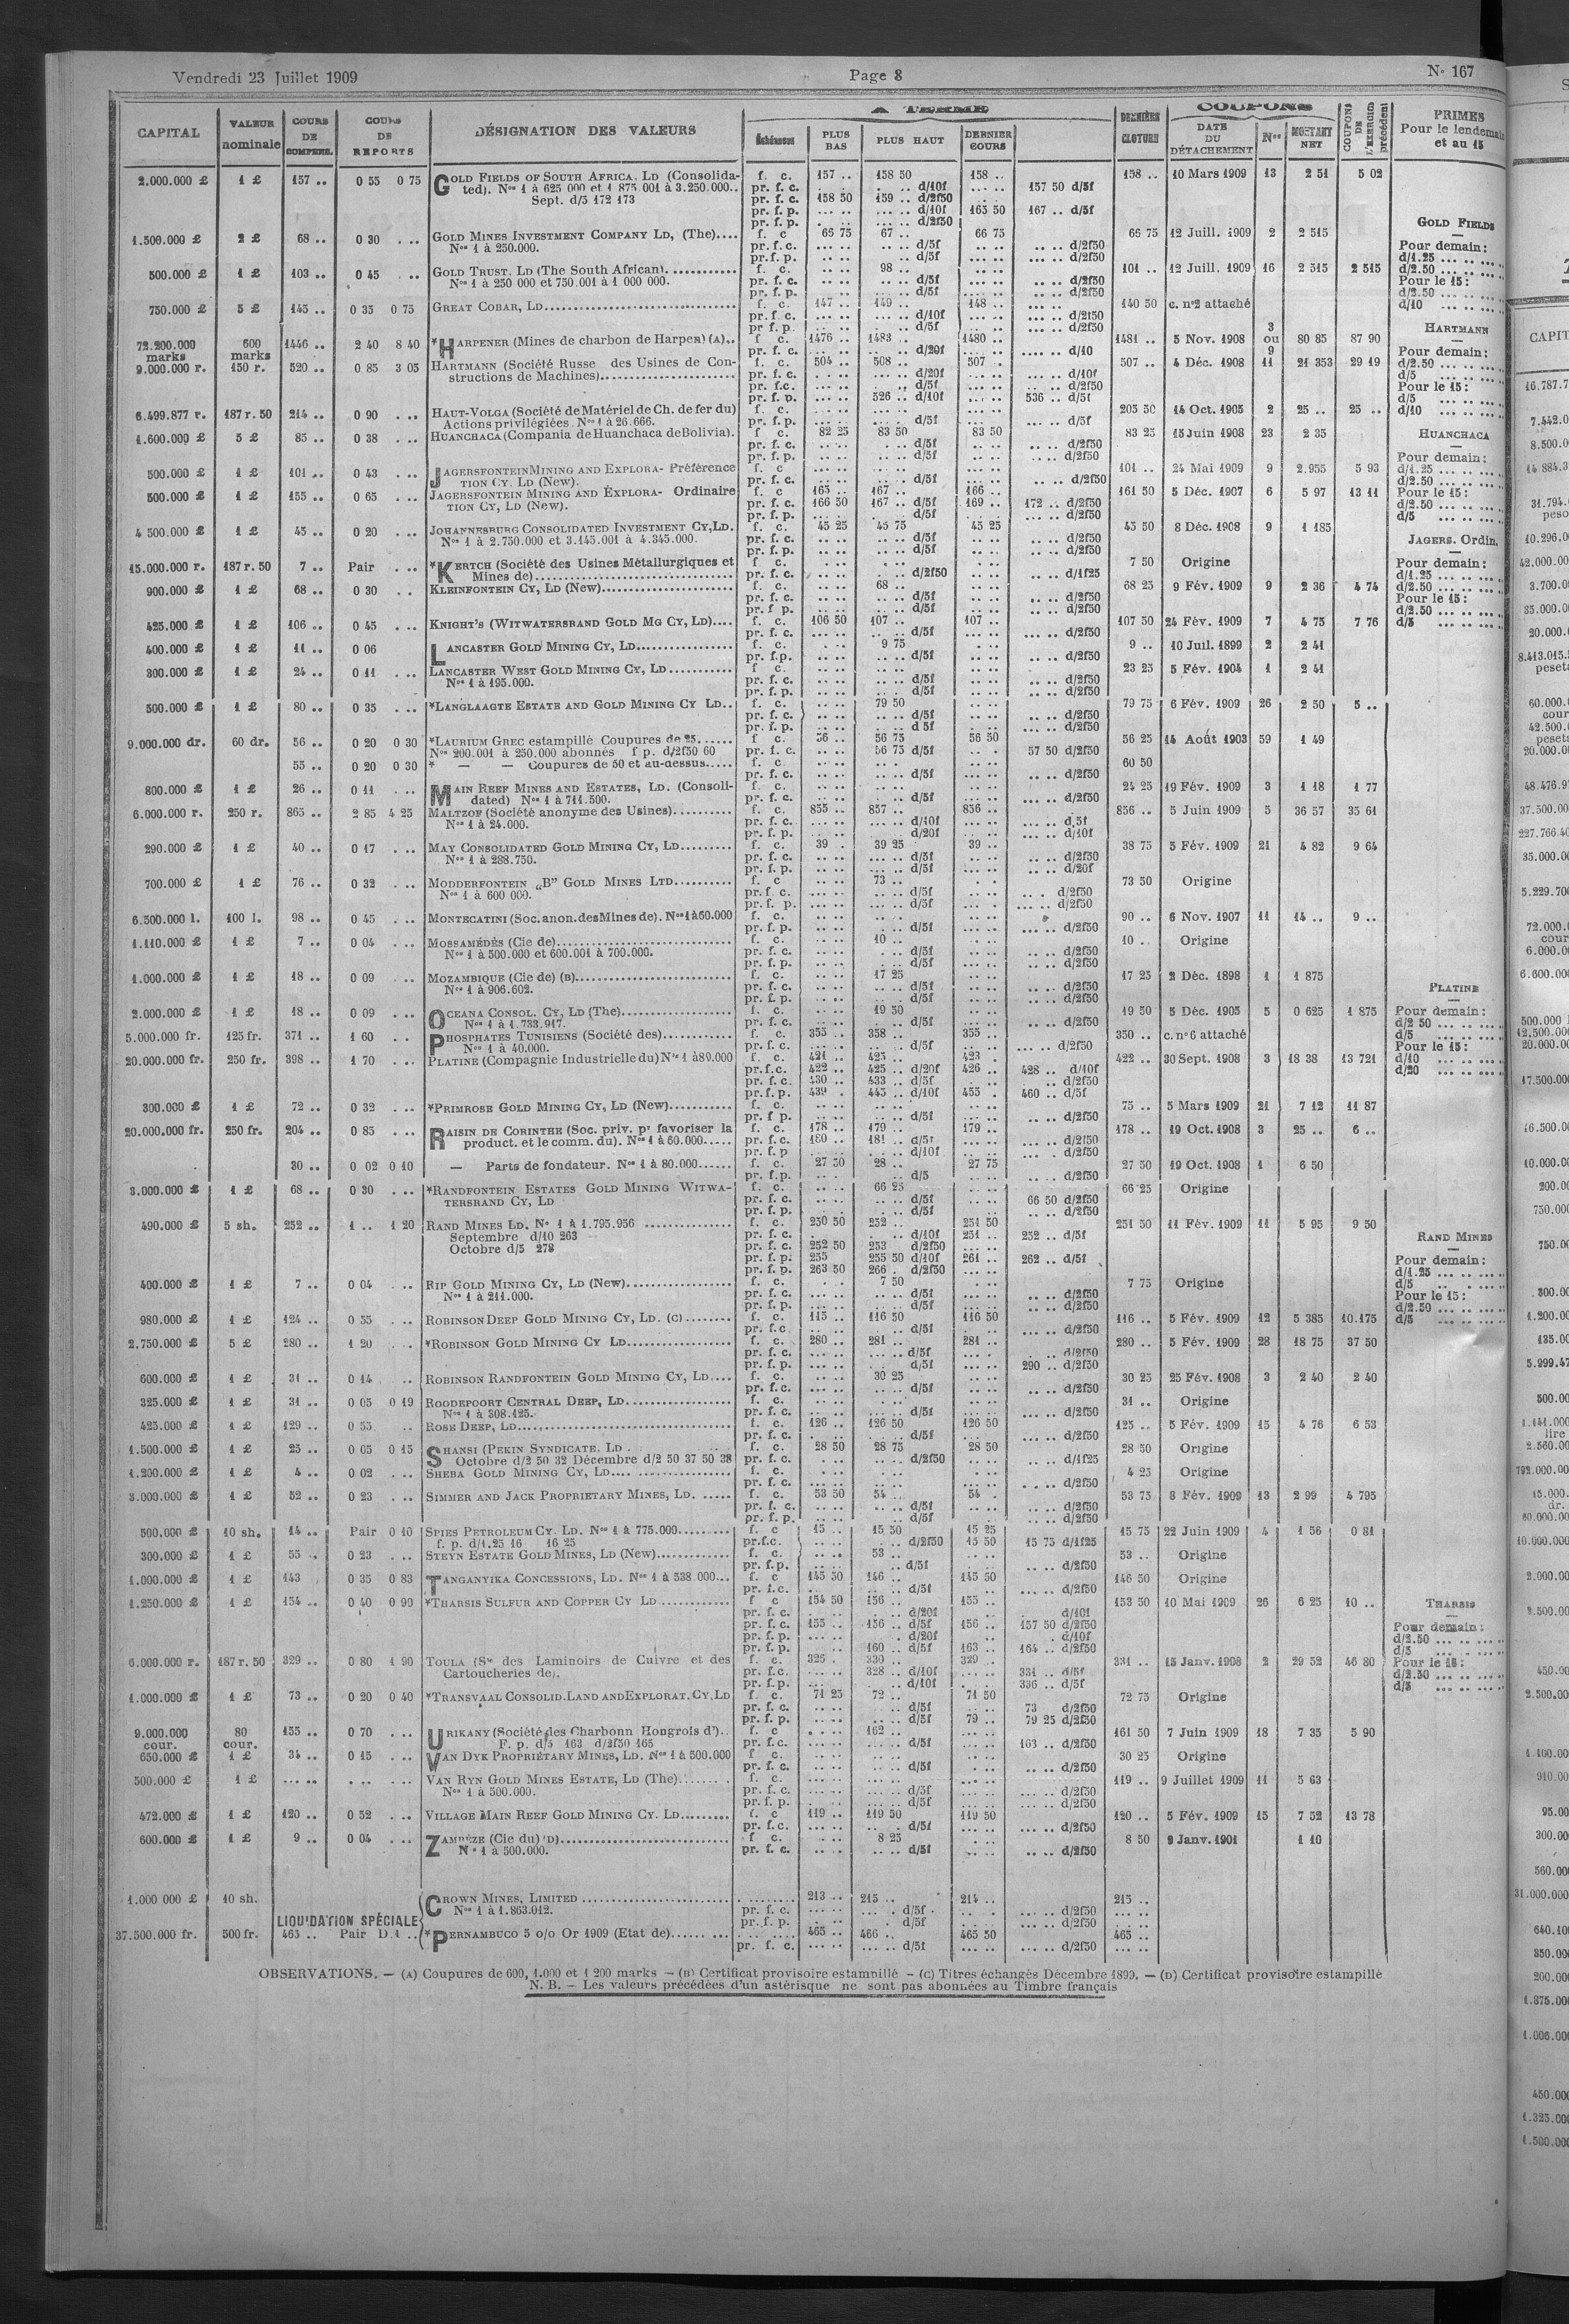 Vendredi 23 Juillet 1909 Page 8 N° 167
CAPITAL VALEUR nominale COURS DE COMPENS. COURS DE REPORTS DÉSIGNATION DES VALEURS A TERME Échéances PLUS BAS PLUS HAUT DERNIER COURS DERNIÈRE CLOTURE COUPONS DATE DU DÉTACHEMENT Nos MONTANT NET COUPONS DE L'EXERCICE précédent PRIMES Pour le lendemain et au 15
2.000.000 £ 1 £ 157 .. 0 55 0 75 GOLD FIELDS OF SOUTH AFRICA, LD (Consolida- f. c. 157 .. 158 50 158 .. 158 .. 10 Mars 1909 13 2 51 5 02
ted). Nos 1 à 625 000 et 1 875 001 à 3.250.000.. pr. f. c. .... d/10f .... 157 50 d/5f
Sept. d/5 172 173 pr. f. c. 158 50 159 .. d/2f50
pr. f. p. .... d/10f 165 50 167 .. d/5f
pr. f. p. .... d/2f50
1.500.000 £ 2 £ 68 .. 0 30 ... GOLD MINES INVESTMENT COMPANY LD, (The).... f. c 66 75 67 .. 66 75 66 75 12 Juill. 1909 2 2 515
Nos 1 à 250.000. pr. f. c. .... d/5f .... d/2f50
pr. f. p. .... d/5f .... d/2f50
500.000 £ 1 £ 103 .. 0 45 ... GOLD TRUST, LD (The South African)............ f. c. 98 .. 101 .. 12 Juill. 1909 16 2 515 2 515
Nos 1 à 250 000 et 750.001 à 1 000 000. pr. f. c. .... d/5f .... d/2f50
pr. f. p. .... d/5f .... d/2f50
750.000 £ 5 £ 145 .. 0 35 0 75 GREAT COBAR, LD........ f. c. 147 .. 149 .. 148 .. 140 50 c. n°2 attaché
pr. f. c. .... d/10f .... d/2f50
pr f. p. .... d/5f .... d/2f50
72.200.000 marks 600 marks 1446 .. 2 40 8 40 *HARPENER (Mines de charbon de Harpen) (A).. f c. 1476 .. 1483 .. 1480 .. 1481 .. 5 Nov. 1908 3 ou 9 80 85 87 90
pr. f. c. .... d/20f .... d/10
9.000.000 r. 150 r. 520 .. 0 85 3 05 HARTMANN (Société Russe des Usines de Con- f. c. 504 .. 508 .. 507 .. 507 .. 4 Déc. 1908 11 21 353 29 19
structions de Machines)........ pr. f. c. .... d/20f .... d/10f
pr. f.c. .... d/5f .... d/2f50
pr. f. p. 526 .. d/10f 536 .. d/5f
6.499.877 r. 187 r. 50 214 .. 0 90 ... HAUT-VOLGA (Société de Matériel de Ch. de fer du) f. c. 205 50 14 Oct. 1905 2 25 .. 25 ..
Actions privilégiées. Nos 1 à 26.666. pr. f. p. .... d/5f .... d/5f
1.600.000 £ 5 £ 85 .. 0 38 ... HUANCHACA (Compania de Huanchaca de Bolivia). f c. 82 25 83 50 83 50 83 25 15 Juin 1908 23 2 35
pr. f. c. .... d/5f .... d/2f50
pr. f. p. .... d/5f .... d/2f50
500.000 £ 1 £ 101 .. 0 43 ... JAGERSFONTEIN MINING AND EXPLORA- Préférence f. c 101 .. 24 Mai 1909 9 2.955 5 93
TION CY. LD (New). pr. f. c. .... d/5f .... d/2f50
500.000 £ 1 £ 155 .. 0 65 ... JAGERSFONTEIN MINING AND EXPLORA- Ordinaire f. c 165 .. 167 .. 166 .. 161 50 5 Déc. 1907 6 5 97 13 11
TION CY, LD (New). pr. f. c. 166 50 167 .. d/5f 169 .. 172 .. d/2f50
pr. f. p. .... d/5f .... d/2f50
4 500.000 £ 1 £ 45 .. 0 20 ... JOHANNESBURG CONSOLIDATED INVESTMENT CY, LD. f. c. 45 25 45 75 45 25 45 50 8 Déc. 1908 9 1 185
Nos 1 à 2.750.000 et 3.145.001 à 4.345.000. pr. f. c. .... d/5f .... d/2f50
pr. f. p. .... d/5f .... d/2f50
15.000.000 r. 187 r. 50 7 .. Pair ... *KERTCH (Société des Usines Métallurgiques et f c. 7 50 Origine
Mines de)........ pr. f. c. .... d/2f50 .... d/1f25
900.000 £ 1 £ 68 .. 0 30 .. KLEINFONTEIN CY, LD (New)........ f. c. 68 .. 68 25 9 Fév. 1909 9 2 36 4 74
pr. f. c. .... d/5f .... d/2f50
pr. f p. .... d/5f .... d/2f50
425.000 £ 1 £ 106 .. 0 45 ... KNIGHT'S (WITWATERSRAND GOLD MG CY, LD).... f. c. 106 50 107 .. 107 .. 107 50 24 Fév. 1909 7 4 75 7 76
pr. f. c. .... d/5f .... d/2f50
400.000 £ 1 £ 11 .. 0 06 LANCASTER GOLD MINING CY, LD........ f. c. 9 75 9 .. 10 Juil. 1899 2 2 41
pr. f.p. .... d/5f .... d/2f50
300.000 £ 1 £ 24 .. 0 11 ... LANCASTER WEST GOLD MINING CY, LD........ f c. 23 25 5 Fév. 1904 1 2 41
Nos 1 à 195.000. pr. f. c. .... d/5f .... d/2f50
pr. f. p. .... d/5f .... d/2f50
500.000 £ 1 £ 80 .. 0 35 ... *LANGLAAGTE ESTATE AND GOLD MINING CY LD.. f. c. 79 50 79 75 6 Fév. 1909 26 2 50 5 ..
pr. f. c. .... d/5f .... d/2f50
pr. f. p. .... d 5f .... d/2f50
9.000.000 dr. 60 dr. 56 .. 0 20 0 30 *LAURIUM GREC estampillé Coupures de 25...... f c. 56 .. 56 75 56 50 56 25 14 Août 1903 59 1 49
Nos 200.001 à 250.000 abonnés f p. d/2f50 60 pr. f. c. 56 75 d/5f 57 50 d/2f50
55 .. 0 20 0 30 * — — Coupures de 50 et au-dessus..... f. c 60 50
pr. f. c. .... d/5f .... d/2f50
800.000 £ 1 £ 26 .. 0 11 ... MAIN REEF MINES AND ESTATES, LD. (Consoli- f. c. 24 25 19 Fév. 1909 3 1 18 1 77
dated) Nos 1 à 711.500. pr. f. c. .... d/5f .... d/2f50
6.000.000 r. 250 r. 865 .. 2 85 4 25 MALTZOF (Société anonyme des Usines)........ f. c. 855 .. 857 .. 856 .. 856 .. 5 Juin 1909 5 36 57 35 61
Nos 1 à 24.000. pr. f. c. .... d/10f .... d.5f
pr. f. p. .... d/20f .... d/10f
290.000 £ 1 £ 40 .. 0 17 ... MAY CONSOLIDATED GOLD MINING CY, LD......... f. c. 39 . 39 25 39 .. 38 75 5 Fév. 1909 21 4 82 9 64
Nos 1 à 288.750. pr. f. c. .... d/5f .... d/2f50
pr. f. p. .... d/5f .... d/20f
700.000 £ 1 £ 76 .. 0 32 ... MODDERFONTEIN „B" GOLD MINES LTD.......... f. c 73 .. 73 50 Origine
Nos 1 à 600 000. pr. f c. .... d/5f .... d/2f50
pr. f. p. .... d/5f .... d/2f50
6.500.000 l. 100 l. 98 .. 0 45 ... MONTECATINI (Soc. anon. des Mines de). Nos 1 à 60.000 f. c. 90 .. 6 Nov. 1907 11 14 .. 9 ..
pr. f. p. .... d/5f .... d/2f50
1.110.000 £ 1 £ 7 .. 0 04 ... MOSSAMÉDÈS (Cie de)........ f. c. 10 .. 10 .. Origine
Nos 1 à 500.000 et 600.001 à 700.000. pr. f. c. .... d/5f .... d/2f50
pr. f. p. .... d/5f .... d/2f50
1.000.000 £ 1 £ 18 .. 0 09 ... MOZAMBIQUE (Cie de) (B)........ f. c. 17 25 17 25 2 Déc. 1898 1 1 875
Nos 1 à 906.602. pr. f. c. .... d/5f .... d/2f50
pr. f. p. .... d/5f .... d/2f50
2.000.000 £ 1 £ 18 .. 0 09 ... OCEANA CONSOL. CY, LD (The)........ f. c. 19 50 19 50 5 Déc. 1905 5 0 625 1 875
Nos 1 à 1.733.917. pr. f. c. .... d/5f .... d/2f50
5.000.000 fr. 125 fr. 371 .. 1 60 ... PHOSPHATES TUNISIENS (Société des)........ f. c. 355 .. 358 .. 355 .. 350 .. c. n°6 attaché
Nos 1 à 40.000. pr. f. c. .... d/5f .... d/2f50
20.000.000 fr. 250 fr. 398 .. 1 70 ... PLATINE (Compagnie Industrielle du) Nos 1 à 80.000 f. c. 421 .. 425 .. 423 . 422 .. 30 Sept. 1908 3 18 38 13 721
pr. f.c. 422 .. 425 .. d/20f 426 .. 428 .. d/10f
pr. f. c. 430 .. 433 .. d/5f .. d/2f50
pr. f. p. 439 . 445 .. d/10f 455 . 460 .. d/5f
300.000 £ 1 £ 72 .. 0 32 ... *PRIMROSE GOLD MINING CY, LD (New)........ f. c. 75 .. 5 Mars 1909 21 7 12 11 87
pr. f p. .... d/5f .... d/2f50
20.000.000 fr. 250 fr. 204 .. 0 85 ... RAISIN DE CORINTHE (Soc. priv. pr favoriser la f. c. 178 .. 179 .. 179 .. 178 .. 19 Oct. 1908 3 25 .. 6 ..
product. et le comm. du). Nos 1 à 60.000..... pr. f. c. 180 .. 181 .. d/5f .... d/2f50
pr. f. p .... d/10f .... d/2f50
30 .. 0 02 0 10 — Parts de fondateur. Nos 1 à 80.000...... f. c. 27 50 28 .. 27 75 27 50 19 Oct. 1908 1 6 50
pr. f.p. .... d/5 .... d/2f50
3.000.000 £ 1 £ 68 .. 0 30 ... *RANDFONTEIN ESTATES GOLD MINING WITWA- f. c. 66 25 66 25 Origine
TERSRAND CY, LD pr. f. c. .... d/5f 66 50 d/2f50
pr. f. p. .... d/5f .... d/2f50
490.000 £ 5 sh. 252 .. 1 .. 1 20 RAND MINES LD. N° 1 à 1.795.956 ........ f. c. 250 50 252 .. 251 50 251 50 11 Fév. 1909 11 5 95 9 50
Septembre d/10 263 pr. f. c. .... d/10f 251 .. 252 .. d/5f
Octobre d/5 278 pr. f. c. 252 50 253 d/2f50
pr. f. p. 255 255 50 d/10f 261 .. 262 .. d/5f
pr. f. p. 263 50 266 . d/2f50
400.000 £ 1 £ 7 .. 0 04 ... RIP GOLD MINING CY, LD (New)........ f. c. 7 50 7 75 Origine
Nos 1 à 211.000. pr. f. c. .... d/5f .... d/2f50
pr. f. p. .... d/5f .... d/2f50
980.000 £ 1 £ 124 .. 0 55 ... ROBINSON DEEP GOLD MINING CY, LD. (C)........ f. c. 115 .. 116 50 116 50 116 .. 5 Fév. 1909 12 5 385 10.175
pr. f.c .... d/5f .... d/2f50
2.750.000 £ 5 £ 280 .. 1 20 .. *ROBINSON GOLD MINING CY LD........ f. c. 280 .. 281 .. 281 .. 280 .. 5 Fév. 1909 28 18 75 37 50
pr. f. c. .... d/5f .... d/2f50
pr. f. p. .... d/5f .... 290 .. d/2f50
600.000 £ 1 £ 31 .. 0 14 .. ROBINSON RANDFONTEIN GOLD MINING CY, LD.... f. c. 30 25 30 25 25 Fév. 1908 3 2 40 2 40
pr. f. c. .... d/5f .... d/2f50
325.000 £ 1 £ 31 .. 0 05 0 19 ROODEPOORT CENTRAL DEEP, LD........ f. c. 31 .. Origine
Nos 1 à 308.125. pr. f. c. .... d/5f .... d/2f50
425.000 £ 1 £ 129 .. 0 55 .. ROSE DEEP, LD........ f. c. 126 .. 126 50 126 50 125 .. 5 Fév. 1909 15 4 76 6 53
pr. f. c. .... d/5f .... d/2f50
1.500.000 £ 1 £ 25 .. 0 05 0 15 SHANSI (PEKIN SYNDICATE, LD . f. c. 28 50 28 75 28 50 28 50 Origine
Octobre d/2 50 32 Décembre d/2 50 37 50 38 pr. f. c. .... d/2f50 .... d/1f25
1.200.000 £ 1 £ 4 .. 0 02 ... SHEBA GOLD MINING CY, LD........ f. c. 4 25 Origine
pr. f. c. .... d/2f50
3.000.000 £ 1 £ 52 .. 0 23 ... SIMMER AND JACK PROPRIETARY MINES, LD. ..... f. c. 53 50 54 .. 54 . 53 75 8 Fév. 1909 13 2 99 4 795
pr. f. c. .... d/5f .... d/2f50
pr. f. p. .... d/5f .... d/2f50
500.000 £ 10 sh. 14 .. Pair 0 10 SPIES PETROLEUM CY. LD. Nos 1 à 775.000......... f. c 15 .. 15 50 15 25 15 75 22 Juin 1909 4 1 56 0 81
f. p. d/1.25 16 16 25 pr.f.c. .... d/2f50 15 50 15 75 d/1f25
300.000 £ 1 £ 55 .. 0 23 ... STEYN ESTATE GOLD MINES, LD (New)........ f. c. 53 .. 53 .. Origine
pr. f. p. .... d/5f .... d/2f50
1.000.000 £ 1 £ 143 0 35 0 83 TANGANYIKA CONCESSIONS, LD. Nos 1 à 538.000... f. c 145 50 146 .. 145 50 146 50 Origine
pr. f.c. .... d/5f .... d/2f50
1.250.000 £ 1 £ 154 .. 0 40 0 90 *THARSIS SULFUR AND COPPER CY LD ........ f c 154 50 156 .. 155 .. 153 50 10 Mai 1909 26 6 25 10 ..
pr. f. c. .... d/20f .... d/10f
pr. f. c. 155 .. 156 .. d/5f 156 .. 157 50 d/2f50
pr. f. p. .... d/20f .... d/10f
pr. f. p. 160 .. d/5f 163 .. 164 .. d/2f50
6.000.000 r. 187 r. 50 329 .. 0 80 1 90 TOULA (Sté des Laminoirs de Cuivre et des f. c. 326 . 330 .. 329 .. 331 .. 15 Janv. 1908 2 29 52 46 80
Cartoucheries de). pr. f.c. 328 .. d/10f 331 .. d/5f
pr. f. p. .... d/10f 336 .. d/5f
1.000.000 £ 1 £ 73 .. 0 20 0 40 *TRANSVAAL CONSOLID. LAND AND EXPLORAT. CY, LD f. c. 71 25 72 .. 71 50 72 75 Origine
pr. f. c. .... d/5f 73 d/2f50
pr. f. p. .... d/5f 79 .. 79 25 d/2f50
9.000.000 cour. 80 cour. 155 .. 0 70 ... URIKANY (Société des Charbonn Hongrois d').. f. c 162 .. 161 50 7 Juin 1909 18 7 35 5 90
F. p. d/5 163 d/2f50 165 pr. f.c. .... d/5f 163 .. d/2f50
650.000 £ 1 £ 34 .. 0 15 ... VAN DYK PROPRIÉTARY MINES, LD. Nos 1 à 500.000 f c. 30 25 Origine
pr. f. c. .... d/5f .... d/2f50
500.000 £ 1 £ .... ... ... VAN RYN GOLD MINES ESTATE, LD (The)........ f. c. 119 .. 9 Juillet 1909 11 5 63
Nos 1 à 500.000. pr. f. c. .... d/5f .... d/2f50
pr. f. p. .... d/5f .... d/2f50
472.000 £ 1 £ 120 .. 0 52 ... VILLAGE MAIN REEF GOLD MINING CY. LD......... f. c 119 .. 119 50 119 50 120 .. 5 Fév. 1909 15 7 52 13 78
pr. f.c. .... d/5f .... d/2f50
600.000 £ 1 £ 9 .. 0 04 ... ZAMBÈZE (Cie du) (D)........ f c. 8 25 8 50 9 Janv. 1901 1 10
Nos 1 à 500.000. pr. f. c. .... d/5f .... d/2f50
1.000 000 £ 10 sh. CROWN MINES, LIMITED ........ 213 .. 215 .. 214 .. 215 ..
Nos 1 à 1.863.012. pr. f. c. .... d/5f .... d/2f50
LIQUIDATION SPÉCIALE pr. f. p. .... d/5f .... d/2f50
37.500.000 fr. 500 fr. 465 .. Pair D.1 .. *PERNAMBUCO 5 o/o Or 1909 (Etat de)........ 465 .. 466 .. 465 50 465 ..
pr. f. c. .... d/5f .... d/2f50
GOLD FIELDS
Pour demain:
d/1.25 ... .. ... ..
d/2.50 ... .. ... ..
Pour le 15:
d/2.50 ... .. ... ..
d/10 ... .. ... ..
HARTMANN
Pour demain:
d/2.50 ... .. ... ..
d/5 ... .. ... ..
Pour le 15:
d/5 ... .. ... ..
d/10 ... .. ... ..
HUANCHACA
Pour demain:
d/1.25 ... .. ... ..
d/2.50 ... .. ... ..
Pour le 15:
d/2.50 ... .. ... ..
d/5 ... .. ... ..
JAGERS. Ordin.
Pour demain:
d/1.25 ... .. ... ..
d/2.50 ... .. ... ..
Pour le 15:
d/2.50 ... .. ... ..
d/5 ... .. ... ..
PLATINE
Pour demain:
d/2 50 ... .. ... ..
d/5 ... .. ... ..
Pour le 15:
d/10 ... .. ... ..
d/20 ... .. ... ..
RAND MINES
Pour demain:
d/1.25 ... .. ... ..
d/5 ... .. ... ..
Pour le 15:
d/2.50 ... .. ... ..
d/5 ... .. ... ..
THARSIS
Pour demain:
d/2.50 ... .. ... ..
d/5 ... .. ... ..
Pour le 15:
d/2.50 ... .. ... ..
d/5 ... .. ... ..
OBSERVATIONS. — (A) Coupures de 600, 1.000 et 1 200 marks — (B) Certificat provisoire estampillé — (C) Titres échangés Décembre 1899. — (D) Certificat provisoire estampillé
N. B. — Les valeurs précédées d'un astérisque ne sont pas abonnées au Timbre français